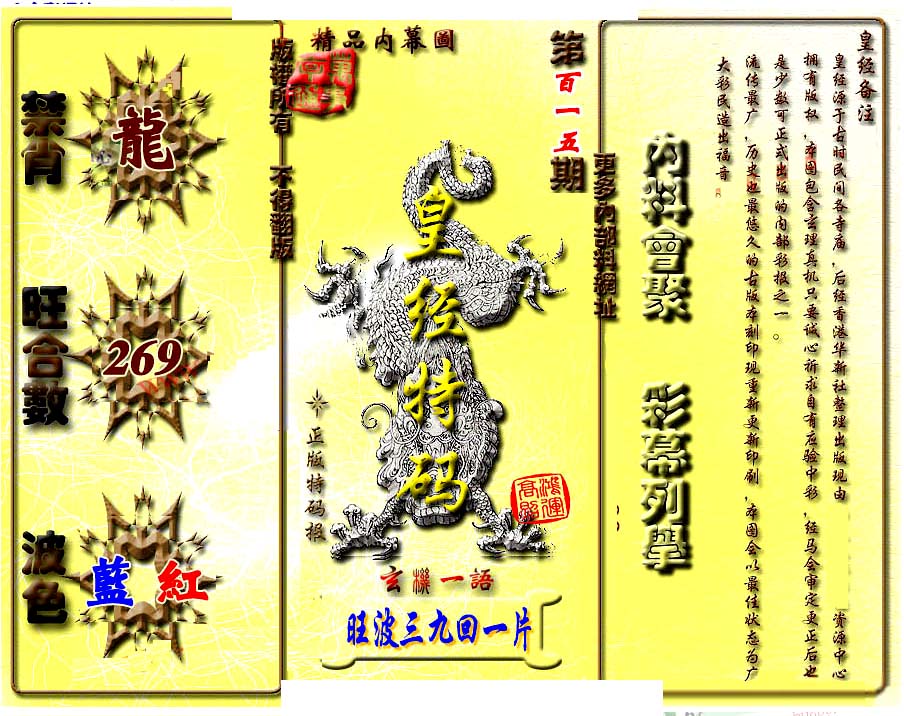 精品内幕圖
第百一五期
版權所有 不得翻版
更多内部料網址
禁肖
龍
旺合數
269
波色
藍 紅
皇经特码
正版特码报
鴻運高照
玄機一語
旺波三九回一片
内料會聚 彩幕列舉
皇经备注
皇经源于古时民间各寺庙，后经香港华新社整理出版现由 资源中心
拥有版权，本图包含玄理真机只要诚心祈求自有应验中彩，经马会审定更正后也
是少数可正式出版的内部彩报之一。
流传最广，历史也最悠久的古版本刻印现重新更新印刷，本图会以最佳状态为广
大彩民造出福音。